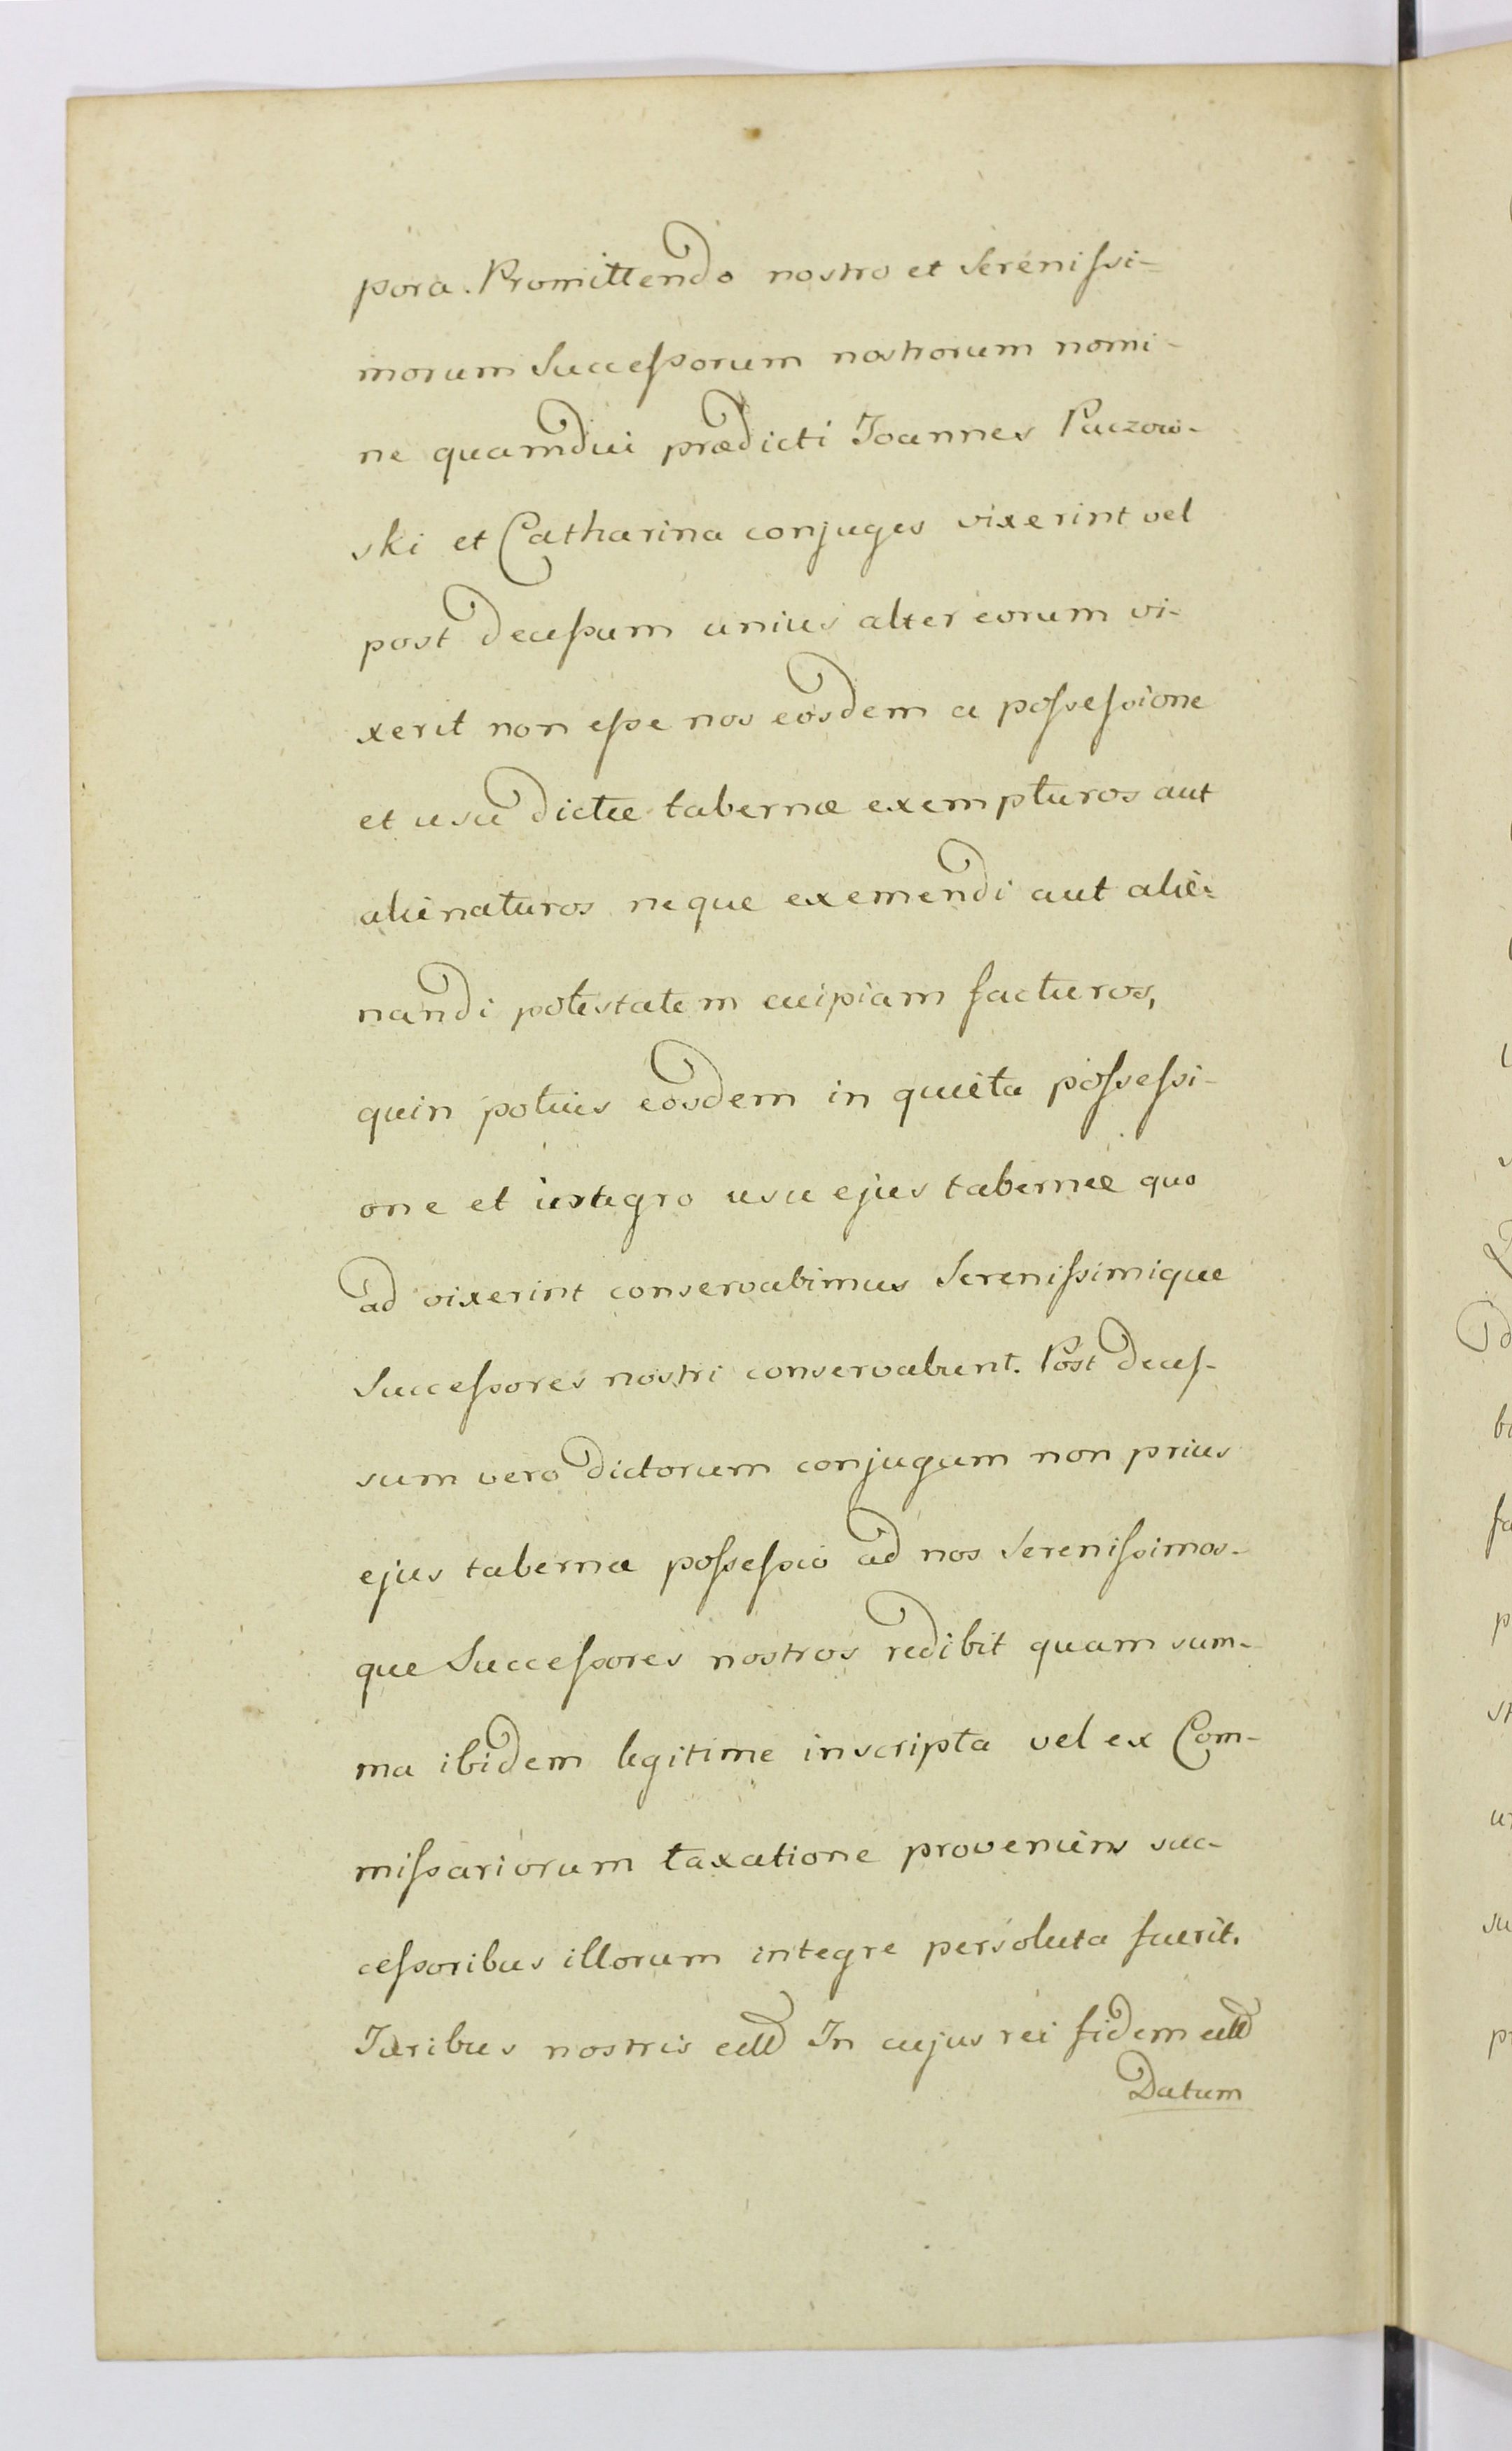 pora. Promittendo nostro et Serenissi-
morum Successorum nostrorum nomi-
ne quamdiu prædicti Joannes Paczow-
ski et Catharina conjuges vixerint vel
post decessum unius alter eorum vi-
xerit non esse nos eosdem a possessione
et usu dictæ tabernæ exempturos aut
alienaturos neque exemendi aut alie-
nandi potestatem cuipiam facturos,
quin potius eosdem in quieta possessi-
one et integro usu ejus tabernæ quo
ad vixerint conservabimus Serenissimique
Successores nostri conservabunt. Post deces-
sum vero dictorum conjugum non prius
ejus tabernæ possessio ad nos Serenissimos-
que Successores nostros redibit quam sum-
ma ibidem legitime inscripta vel ex Com-
missariorum taxatione proveniens suc-
cessoribus illorum integre persoluta fuerit.
Juribus nostris In cujus rei fidem
Datum